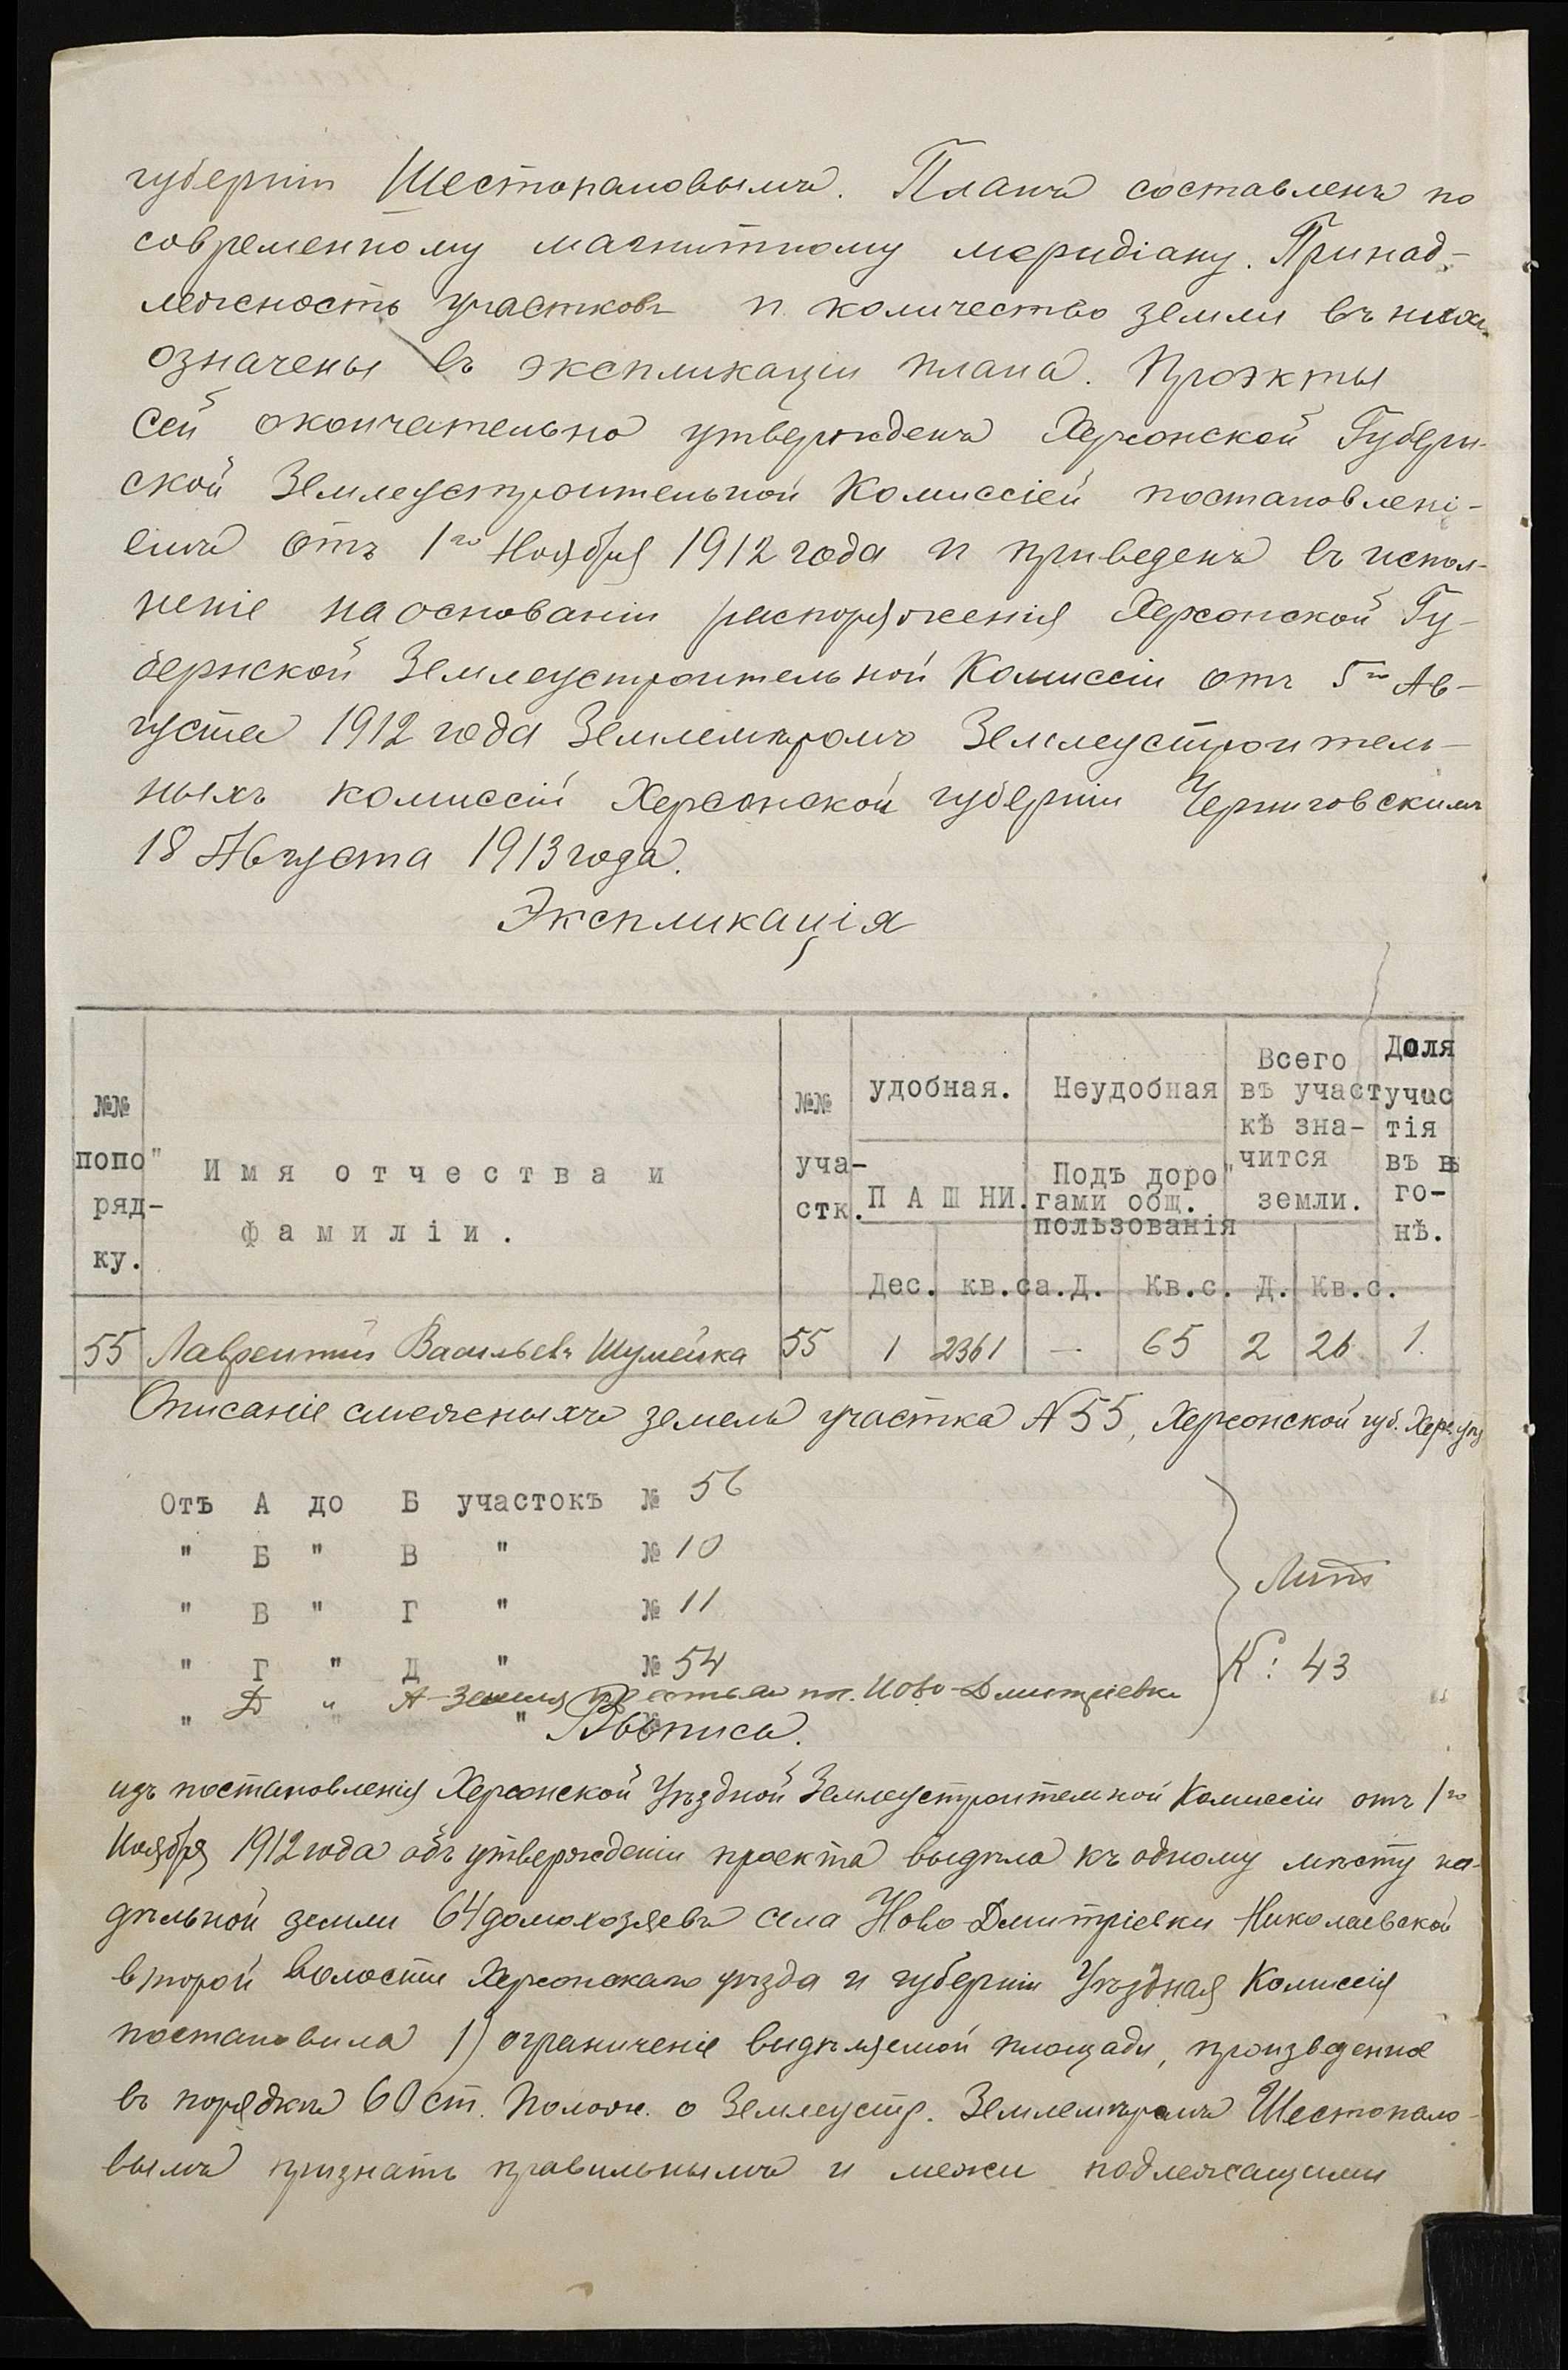 губерніи Шестопаловымъ. Планъ составленъ по
современному магнитному меридіану. Принад-
лежность участковъ и количество земли въ нихъ
означены въ экспликаціи плана. Проэкты
сей окончательно утвержденъ Херсонской Губерн-
ской Землеустроительной Комиссіей постановлені-
емъ отъ 1го Ноября 1912 года и приведенъ въ испол-
неніе на основаніи распоряженія Херсонской Гу-
бернской Землеустроительной Комиссіи отъ 5го Ав-
густа 1912 года Землемѣромъ Землеустроитель-
ныхъ комиссій Херсонской губерніи Черниговскимъ
18 Августа 1913 года.
Экспликація
№№ попо" ряд- ку.
Имя отчества и фамиліи.
№№ уча- стк.
удобная. ПАШНИ. Дес. кв.са.
Неудобная Подъ доро" гами общ. пользованія Д. Кв.с.
Всего въ участ кѣ зна- чится земли. Д. Кв.с.
Доля учас тія въ вы го- нѣ.
55 Лаврентій Васильевъ Шумейка 55 1 2361 — 65 2 26 1.
Описаніе смежныхъ земель участка №55, Херсонской губ. Херс. у.
Отъ А до Б участокъ № 56
" Б " В " № 10
" В " Г " № 11
" Г " Д " № 54
Д " А - Земля крестьян пос. Ново-Дмитріевки
" " " №
Лит
К: 43
Выпись.
изъ постановленія Херсонской Уѣздной Землеустроительной Комиссіи отъ 1го
Ноября 1912 года объ утвержденіи проекта выдѣла къ одному мѣсту на-
дѣльной земли 64 домохозяевъ села Ново-Дмитріевки Николаевской
второй волости Херсонскаго уѣзда и губерніи Уѣздная Комиссія
постановила 1) ограниченіе выдѣляемой площади, произведенное
въ порядкѣ 60 ст. Полож. о Землеустр. Землемѣромъ Шестопало-
вымъ признать правильнымъ и межи подлежащими